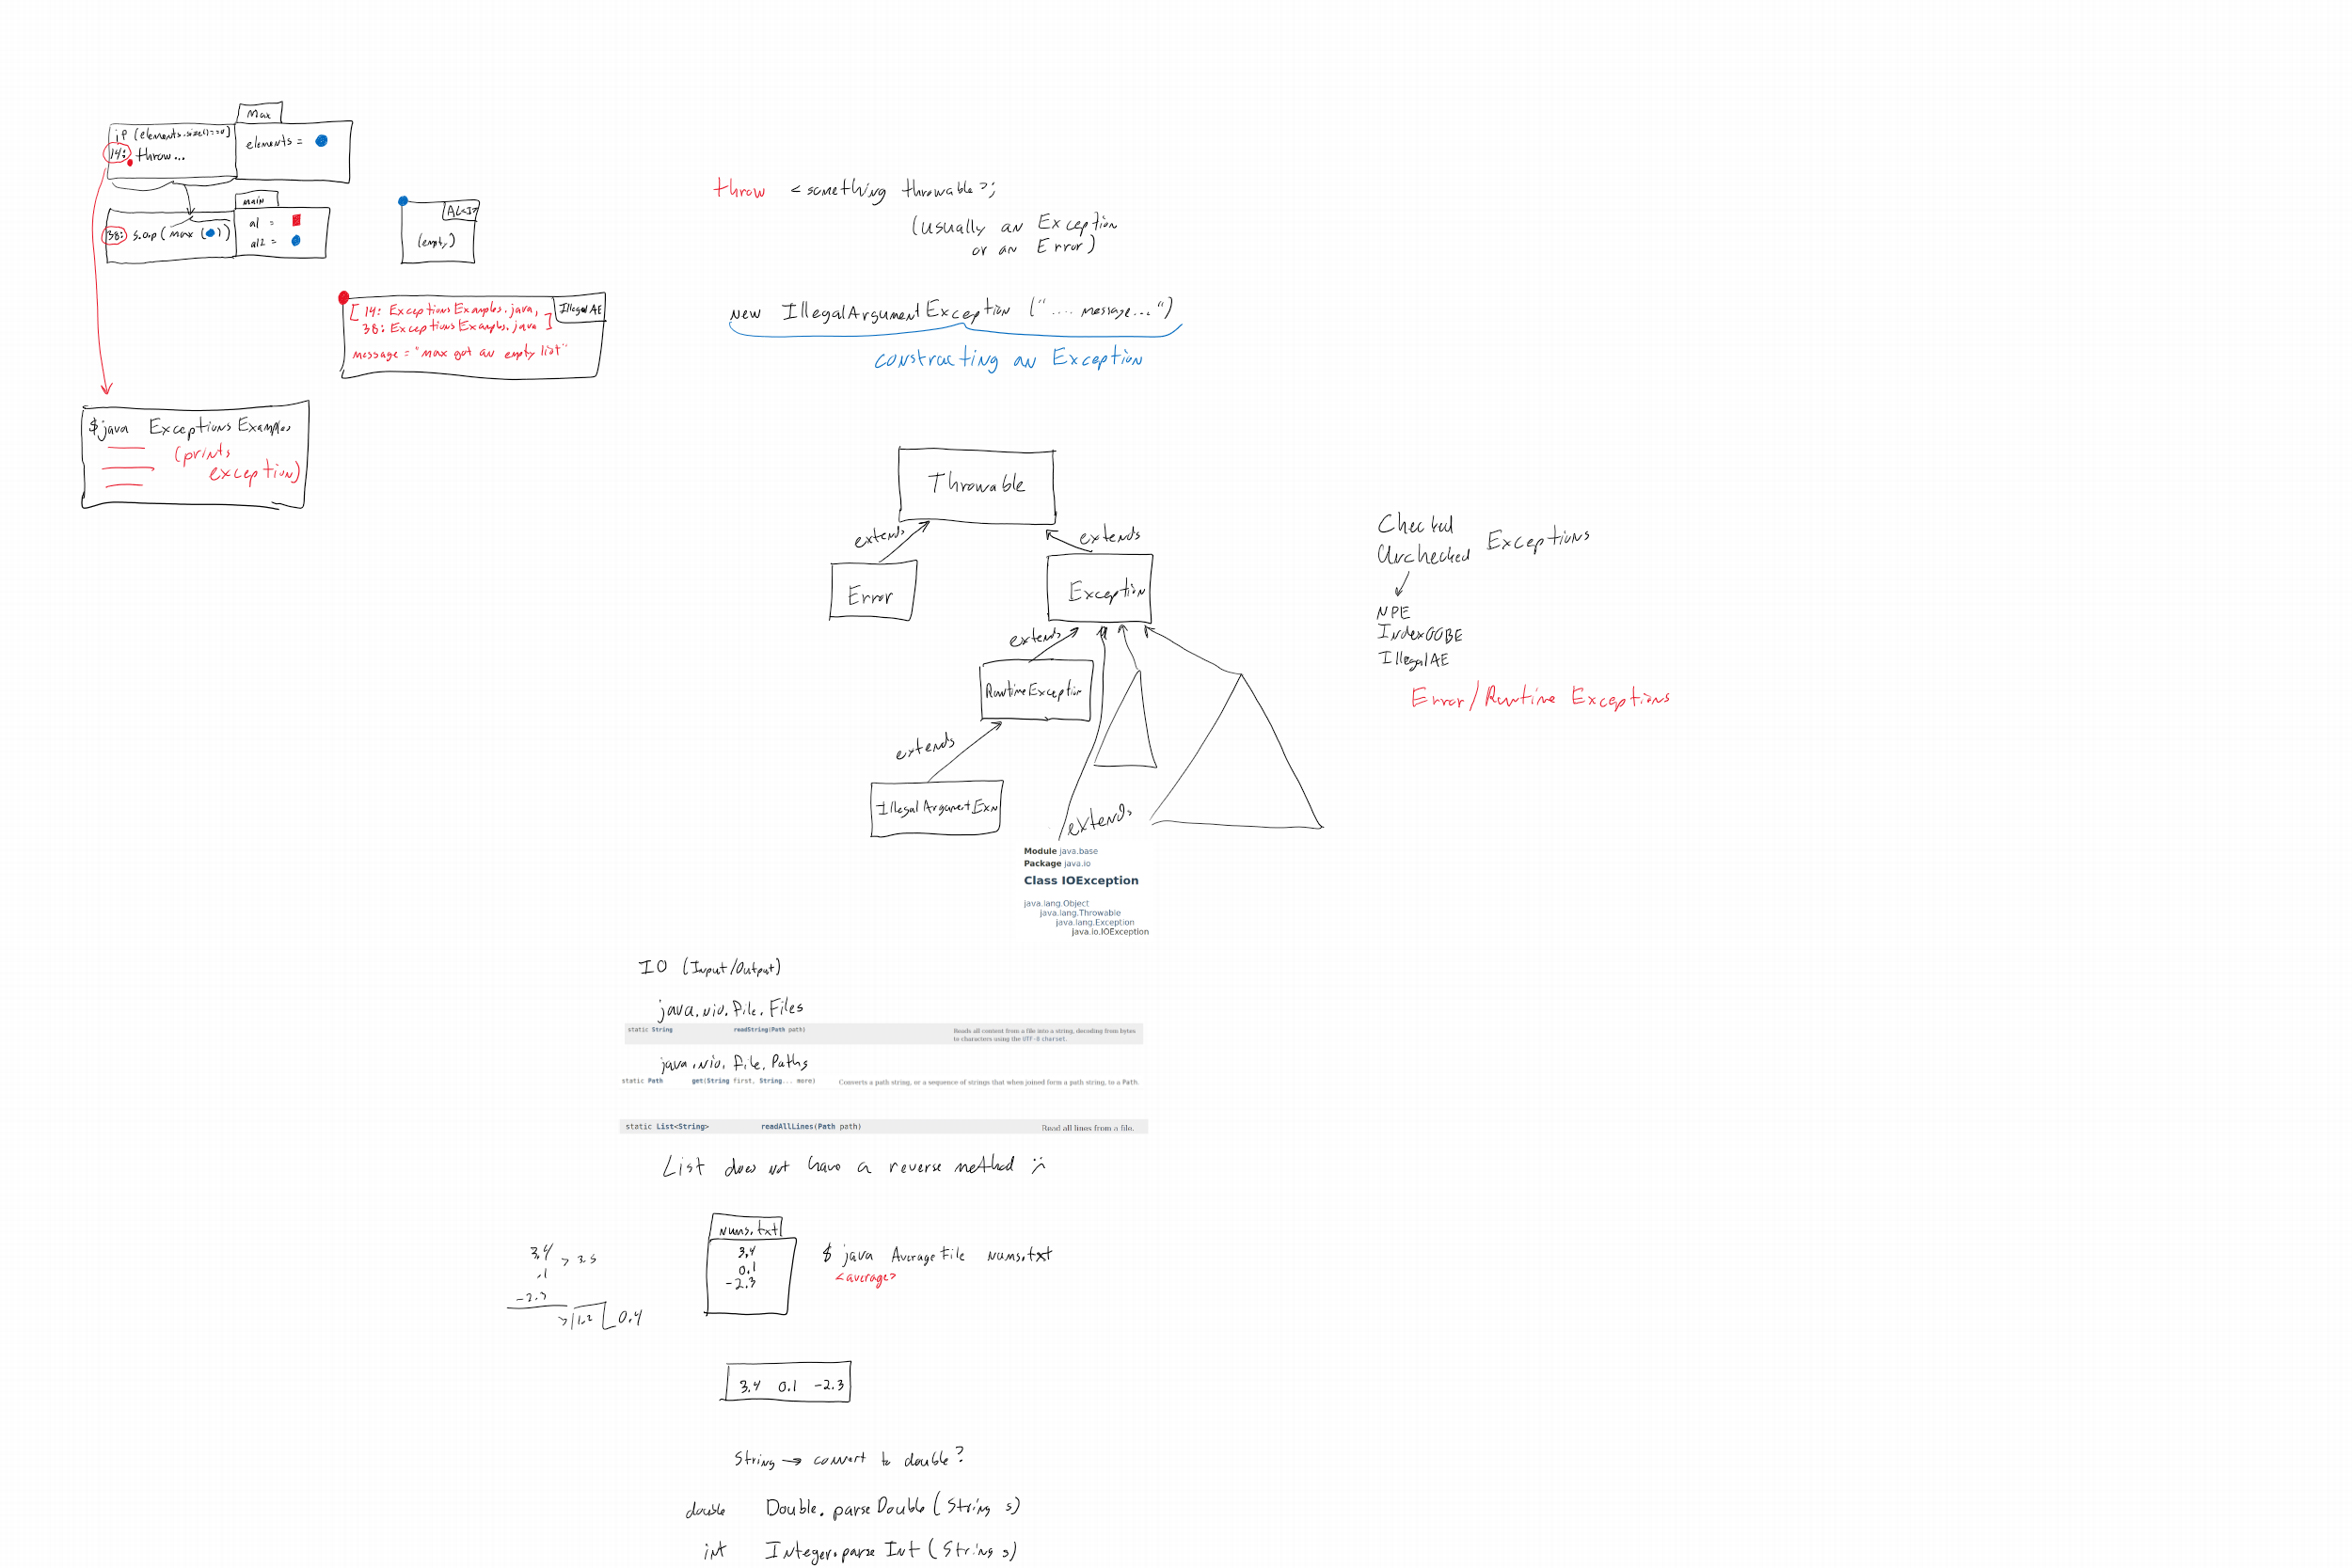 Max
if (elements.size()==0)
14: throw...
elements =
main
38: s.o.p(max( ))
a1 =
a12 =
AL<I>
(empty)
[14: ExceptionsExamples.java,
38: ExceptionsExamples.java]
IllegalAE
message = "max got an empty list"
$java ExceptionsExamples
(prints
exception)
throw <something throwable>;
(usually an Exception
or an Error)
new IllegalArgumentException (".... message...")
constructing an Exception
Throwable
extends
extends
Error
Exception
extends
RuntimeException
extends
IllegalArgumentExn
extends
Checked
Unchecked Exceptions
NPE
IndexOOBE
IllegalAE
Error/Runtime Exceptions
Module java.base
Package java.io
Class IOException
java.lang.Object
java.lang.Throwable
java.lang.Exception
java.io.IOException
IO (Input/Output)
java.nio.file.Files
static String readString(Path path) Reads all content from a file into a string, decoding from bytes
to characters using the UTF-8 charset.
java.nio.file.Paths
static Path get(String first, String... more) Converts a path string, or a sequence of strings that when joined form a path string, to a Path.
static List<String> readAllLines(Path path) Read all lines from a file.
List does not have a reverse method :(
3.4 > 3.5
.1
-2.3
> 1.2 0.4
nums.txt
3.4
0.1
-2.3
$ java AverageFile nums.txt
<average>
3.4 0.1 -2.3
String → convert to double?
double Double.parseDouble(String s)
int Integer.parseInt(String s)